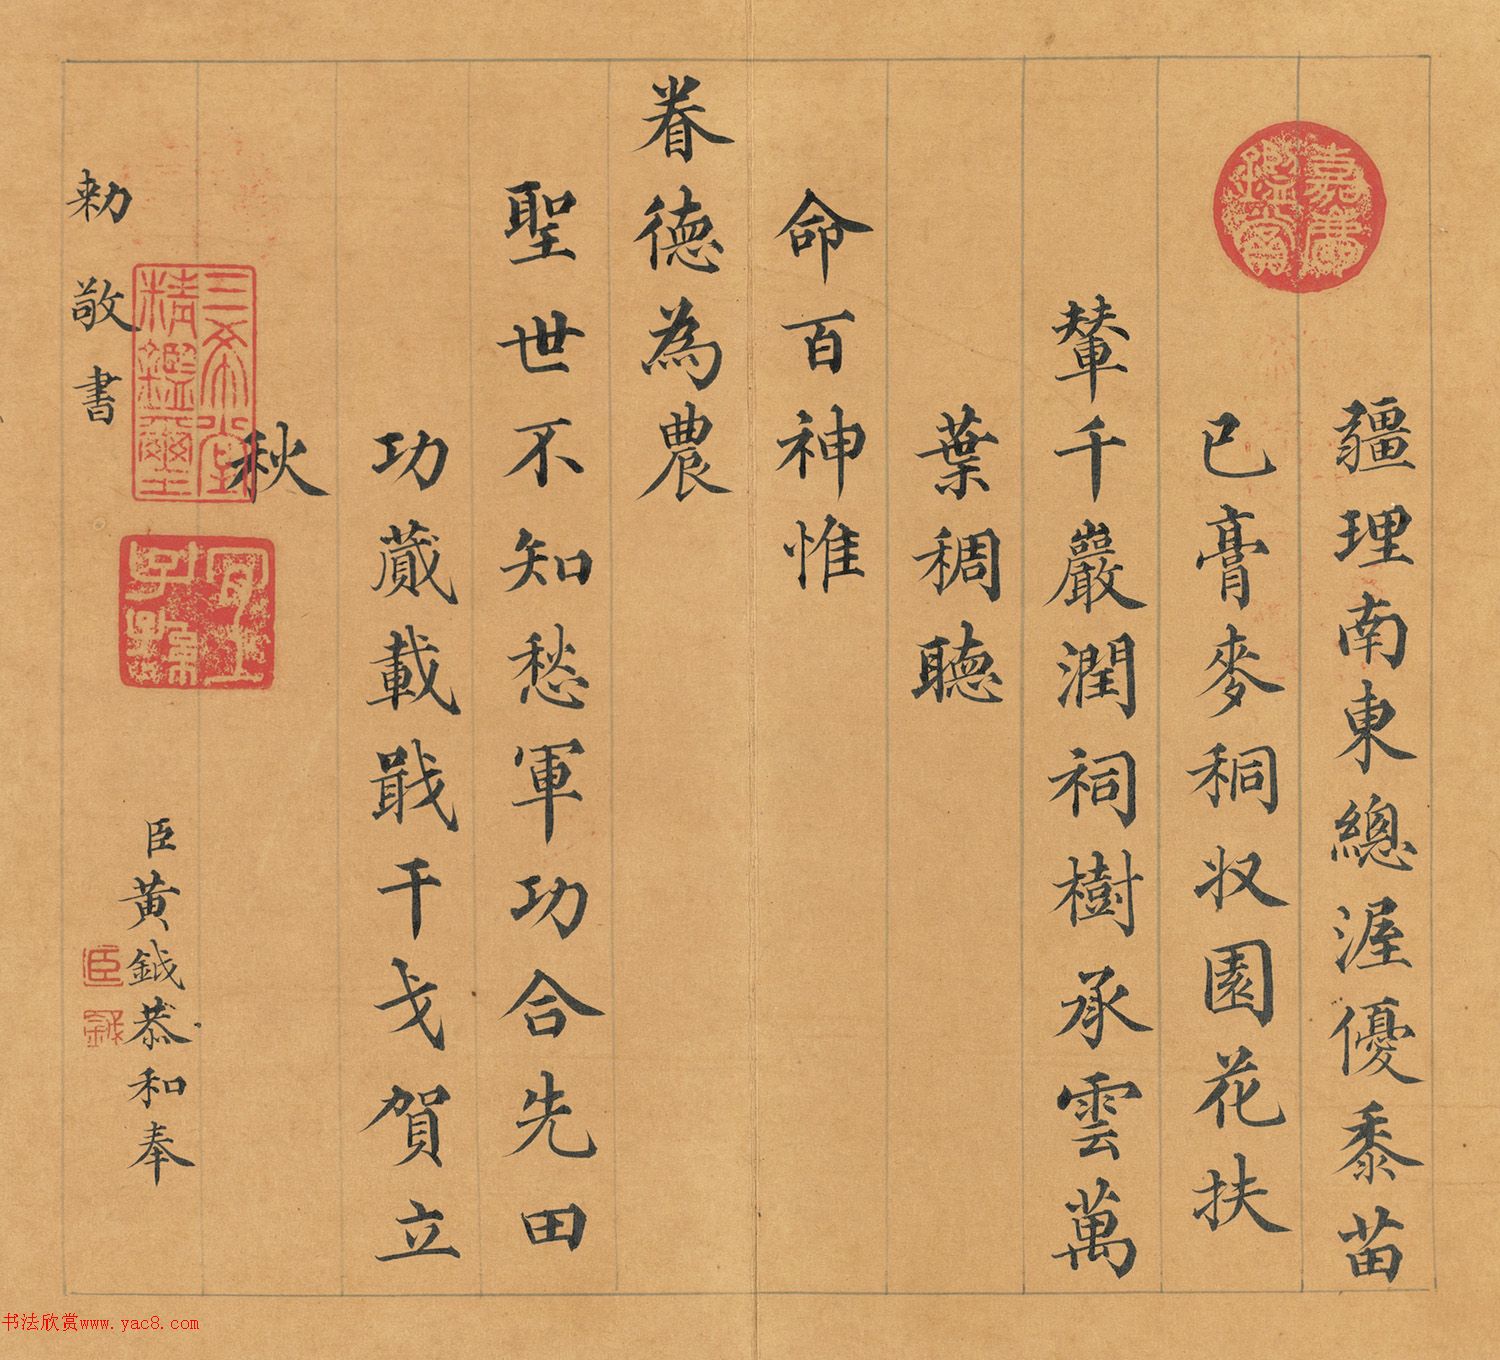 疆理南東總渥優黍苗
已膏麥秱収園花扶
輦千巖潤祠樹承雲萬
葉稠聽
命百神惟
眷德為農
聖世不知愁軍功合先田
功蕆載戢干戈賀立
秋
臣黃鉞恭和奉
勅敬書
嘉慶
鑑賞
三希堂
精鑑璽
宜子
孫
臣
鉞
书法欣赏www.yac8.com